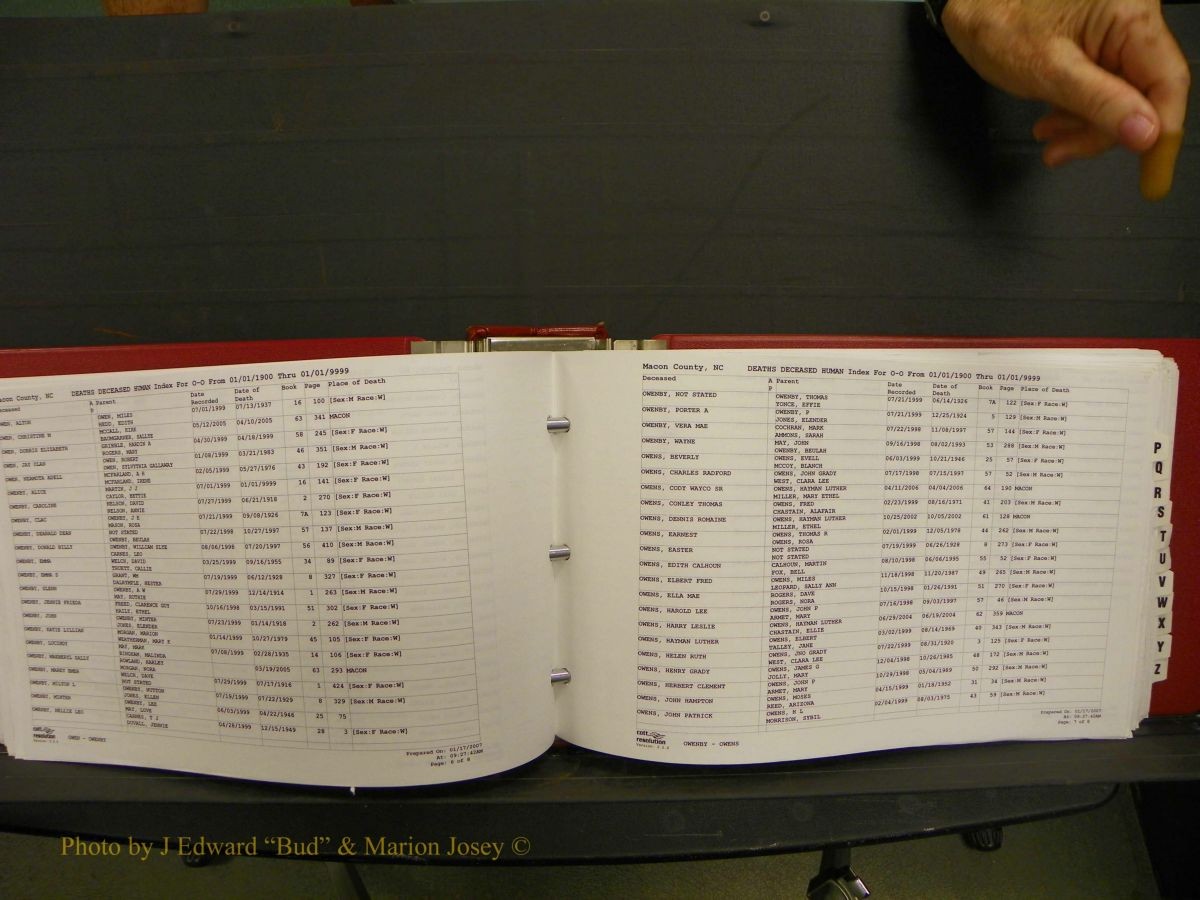 Macon County, NC DEATHS DECEASED HUMAN Index For O-O From 01/01/1900 Thru 01/01/9999
Deceased A Parent Date Recorded Date of Death Book Page Place of Death
OWEN, MILES 07/01/1999 07/13/1937 16 100 [Sex:M Race:W]
OWEN, ALTON REDD, EDITH
MCCALL, KIRK 05/12/2005 04/10/2005 63 341 MACON
OWEN, CHRISTINE M BAUMGARNER, SALLYE
GRINDLE, HARDIN A 04/30/1999 04/18/1999 58 245 [Sex:F Race:W]
OWEN, DORRIS ELIZABETH ROGERS, MARY
OWEN, ROBERT 01/08/1999 03/21/1983 46 351 [Sex:M Race:W]
OWEN, SYLVYNIA GALLAWAY
MCFARLAND, A R 02/05/1999 05/27/1976 43 192 [Sex:F Race:W]
MCFARLAND, IRENE
OWENBY, ALICE MARTIN, J J 07/01/1999 01/01/9999 16 141 [Sex:F Race:W]
OWENBY, CAROLINE 07/27/1999 06/21/1918 2 270 [Sex:F Race:W]
NELSON, DAVID
NELSON, ANNIE
OWENBY, CLAC OWENBY, J E 07/21/1999 09/08/1926 7A 123 [Sex:F Race:W]
MASON, ROSA
NOT STATED 07/22/1998 10/27/1997 57 137 [Sex:M Race:W]
OWENBY, BEULAH
OWENBY, DONALD BILLY 08/06/1998 07/20/1997 56 410 [Sex:M Race:W]
CARNES, LEO
OWENBY, EMMA WELCH, DAVID 03/25/1999 09/16/1955 34 89 [Sex:F Race:W]
OWENBY, EMMA S GRANT, WM 07/19/1999 06/12/1928 8 327 [Sex:F Race:W]
DALRYMPLE, HESTER
OWENBY, GLENN OWENBY, A W 07/29/1999 12/14/1914 1 263 [Sex:M Race:W]
MAY, RUTHIE
OWENBY, JENNIE FRIEDA FREED, CLARENCE GUY 10/16/1998 03/15/1991 51 302 [Sex:F Race:W]
OWENBY, JOHN 07/23/1999 01/14/1918 2 262 [Sex:M Race:W]
JONES, ELENDER
OWENBY, KATIE LILLIAN MORGAN, MARION 01/14/1999 10/27/1979 45 105 [Sex:F Race:W]
WEATHERMAN, MARY E
MAY, MARK 07/08/1999 02/28/1935 14 106 [Sex:F Race:W]
BINGHAM, MALINDA
ROWLAND, HARLEY 03/19/2005 63 293 MACON
MORGAN, NORA
WELCH, DAVE 07/29/1999 07/17/1916 1 424 [Sex:F Race:W]
NOT STATED
OWENBY, MILTON L 07/19/1999 07/22/1929 8 329 [Sex:M Race:W]
JONES, ELLEN
OWENBY, LEE 06/03/1999 04/22/1946 25 75
MAY, LOVE
OWENBY, NELLIE LEE CARNES, T J 04/28/1999 12/15/1949 28 3 [Sex:F Race:W]
DUVALL, JENNIE
cott resolution
OWEN - OWENBY
Prepared On: 01/17/2007
At: 09:27:42AM
Page: 6 of 8
Macon County, NC DEATHS DECEASED HUMAN Index For O-O From 01/01/1900 Thru 01/01/9999
Deceased A Parent Date Recorded Date of Death Book Page Place of Death
P
OWENBY, NOT STATED OWENBY, THOMAS 07/21/1999 06/14/1926 7A 122 [Sex:F Race:W]
YONCE, EFFIE
OWENBY, PORTER A OWENBY, P 07/21/1999 12/25/1924 5 129 [Sex:M Race:W]
JONES, ELENDER
OWENBY, VERA MAE COCHRAN, MARK 07/22/1998 11/08/1997 57 144 [Sex:F Race:W]
AMMONS, SARAH
OWENBY, WAYNE MAY, JOHN 09/16/1998 08/02/1993 53 288 [Sex:M Race:W]
OWENBY, BEULAH
OWENS, BEVERLY OWENS, EVELL 06/03/1999 10/21/1946 25 57 [Sex:F Race:W]
MCCOY, BLANCH
OWENS, CHARLES RADFORD OWENS, JOHN GRADY 07/17/1998 07/15/1997 57 52 [Sex:M Race:W]
WEST, CLARA LEE
OWENS, CODY WAYCO SR OWENS, HAYMAN LUTHER 04/11/2006 04/04/2006 64 190 MACON
MILLER, MARY ETHEL
OWENS, CONLEY THOMAS OWENS, FRED 02/23/1999 08/16/1971 41 203 [Sex:M Race:W]
CHASTAIN, ALAFAIR
OWENS, DENNIS ROMAINE OWENS, HAYMAN LUTHER 10/25/2002 10/05/2002 61 128 MACON
MILLER, ETHEL
OWENS, EARNEST OWENS, THOMAS R 02/01/1999 12/05/1978 44 262 [Sex:M Race:W]
OWENS, ROSA
OWENS, EASTER NOT STATED 07/19/1999 06/26/1928 8 273 [Sex:F Race:W]
NOT STATED
OWENS, EDITH CALHOUN CALHOUN, MARTIN 08/10/1998 06/06/1995 55 52 [Sex:F Race:W]
FOX, BELL
OWENS, ELBERT FRED OWENS, MILES 11/18/1998 11/20/1987 49 265 [Sex:M Race:W]
LEOPARD, SALLY ANN
OWENS, ELLA MAE ROGERS, DAVE 10/15/1998 01/26/1991 51 270 [Sex:F Race:W]
ROGERS, NORA
OWENS, HAROLD LEE OWENS, JOHN P 07/16/1998 09/03/1997 57 46 [Sex:M Race:W]
ARMET, MARY
OWENS, HARRY LESLIE OWENS, HAYMAN LUTHER 06/29/2004 06/19/2004 62 359 MACON
CHASTAIN, ELLIE
OWENS, HAYMAN LUTHER OWENS, ELBERT 03/02/1999 08/14/1969 40 343 [Sex:M Race:W]
TALLEY, JANE
OWENS, HELEN RUTH OWENS, JNO GRADY 07/22/1999 08/31/1920 3 125 [Sex:F Race:W]
WEST, CLARA LEE
OWENS, HENRY GRADY OWENS, JAMES G 12/04/1998 10/26/1985 48 172 [Sex:M Race:W]
JOLLY, MARY
OWENS, HERBERT CLEMENT OWENS, JOHN P 10/29/1998 05/04/1989 50 292 [Sex:M Race:W]
ARMET, MARY
OWENS, JOHN HAMPTON OWENS, MOSES 04/15/1999 01/18/1952 31 34 [Sex:M Race:W]
REED, ARIZONA
OWENS, JOHN PATRICK OWENS, H L 02/04/1999 08/03/1975 43 59 [Sex:M Race:W]
MORRISON, SYBIL
cott resolution
OWENBY - OWENS
Prepared On: 01/17/2007
At: 09:27:42AM
Page: 7 of 8
P
Q
R
S
T
U
V
W
X
Y
Z
Photo by J Edward “Bud” & Marion Josey ©